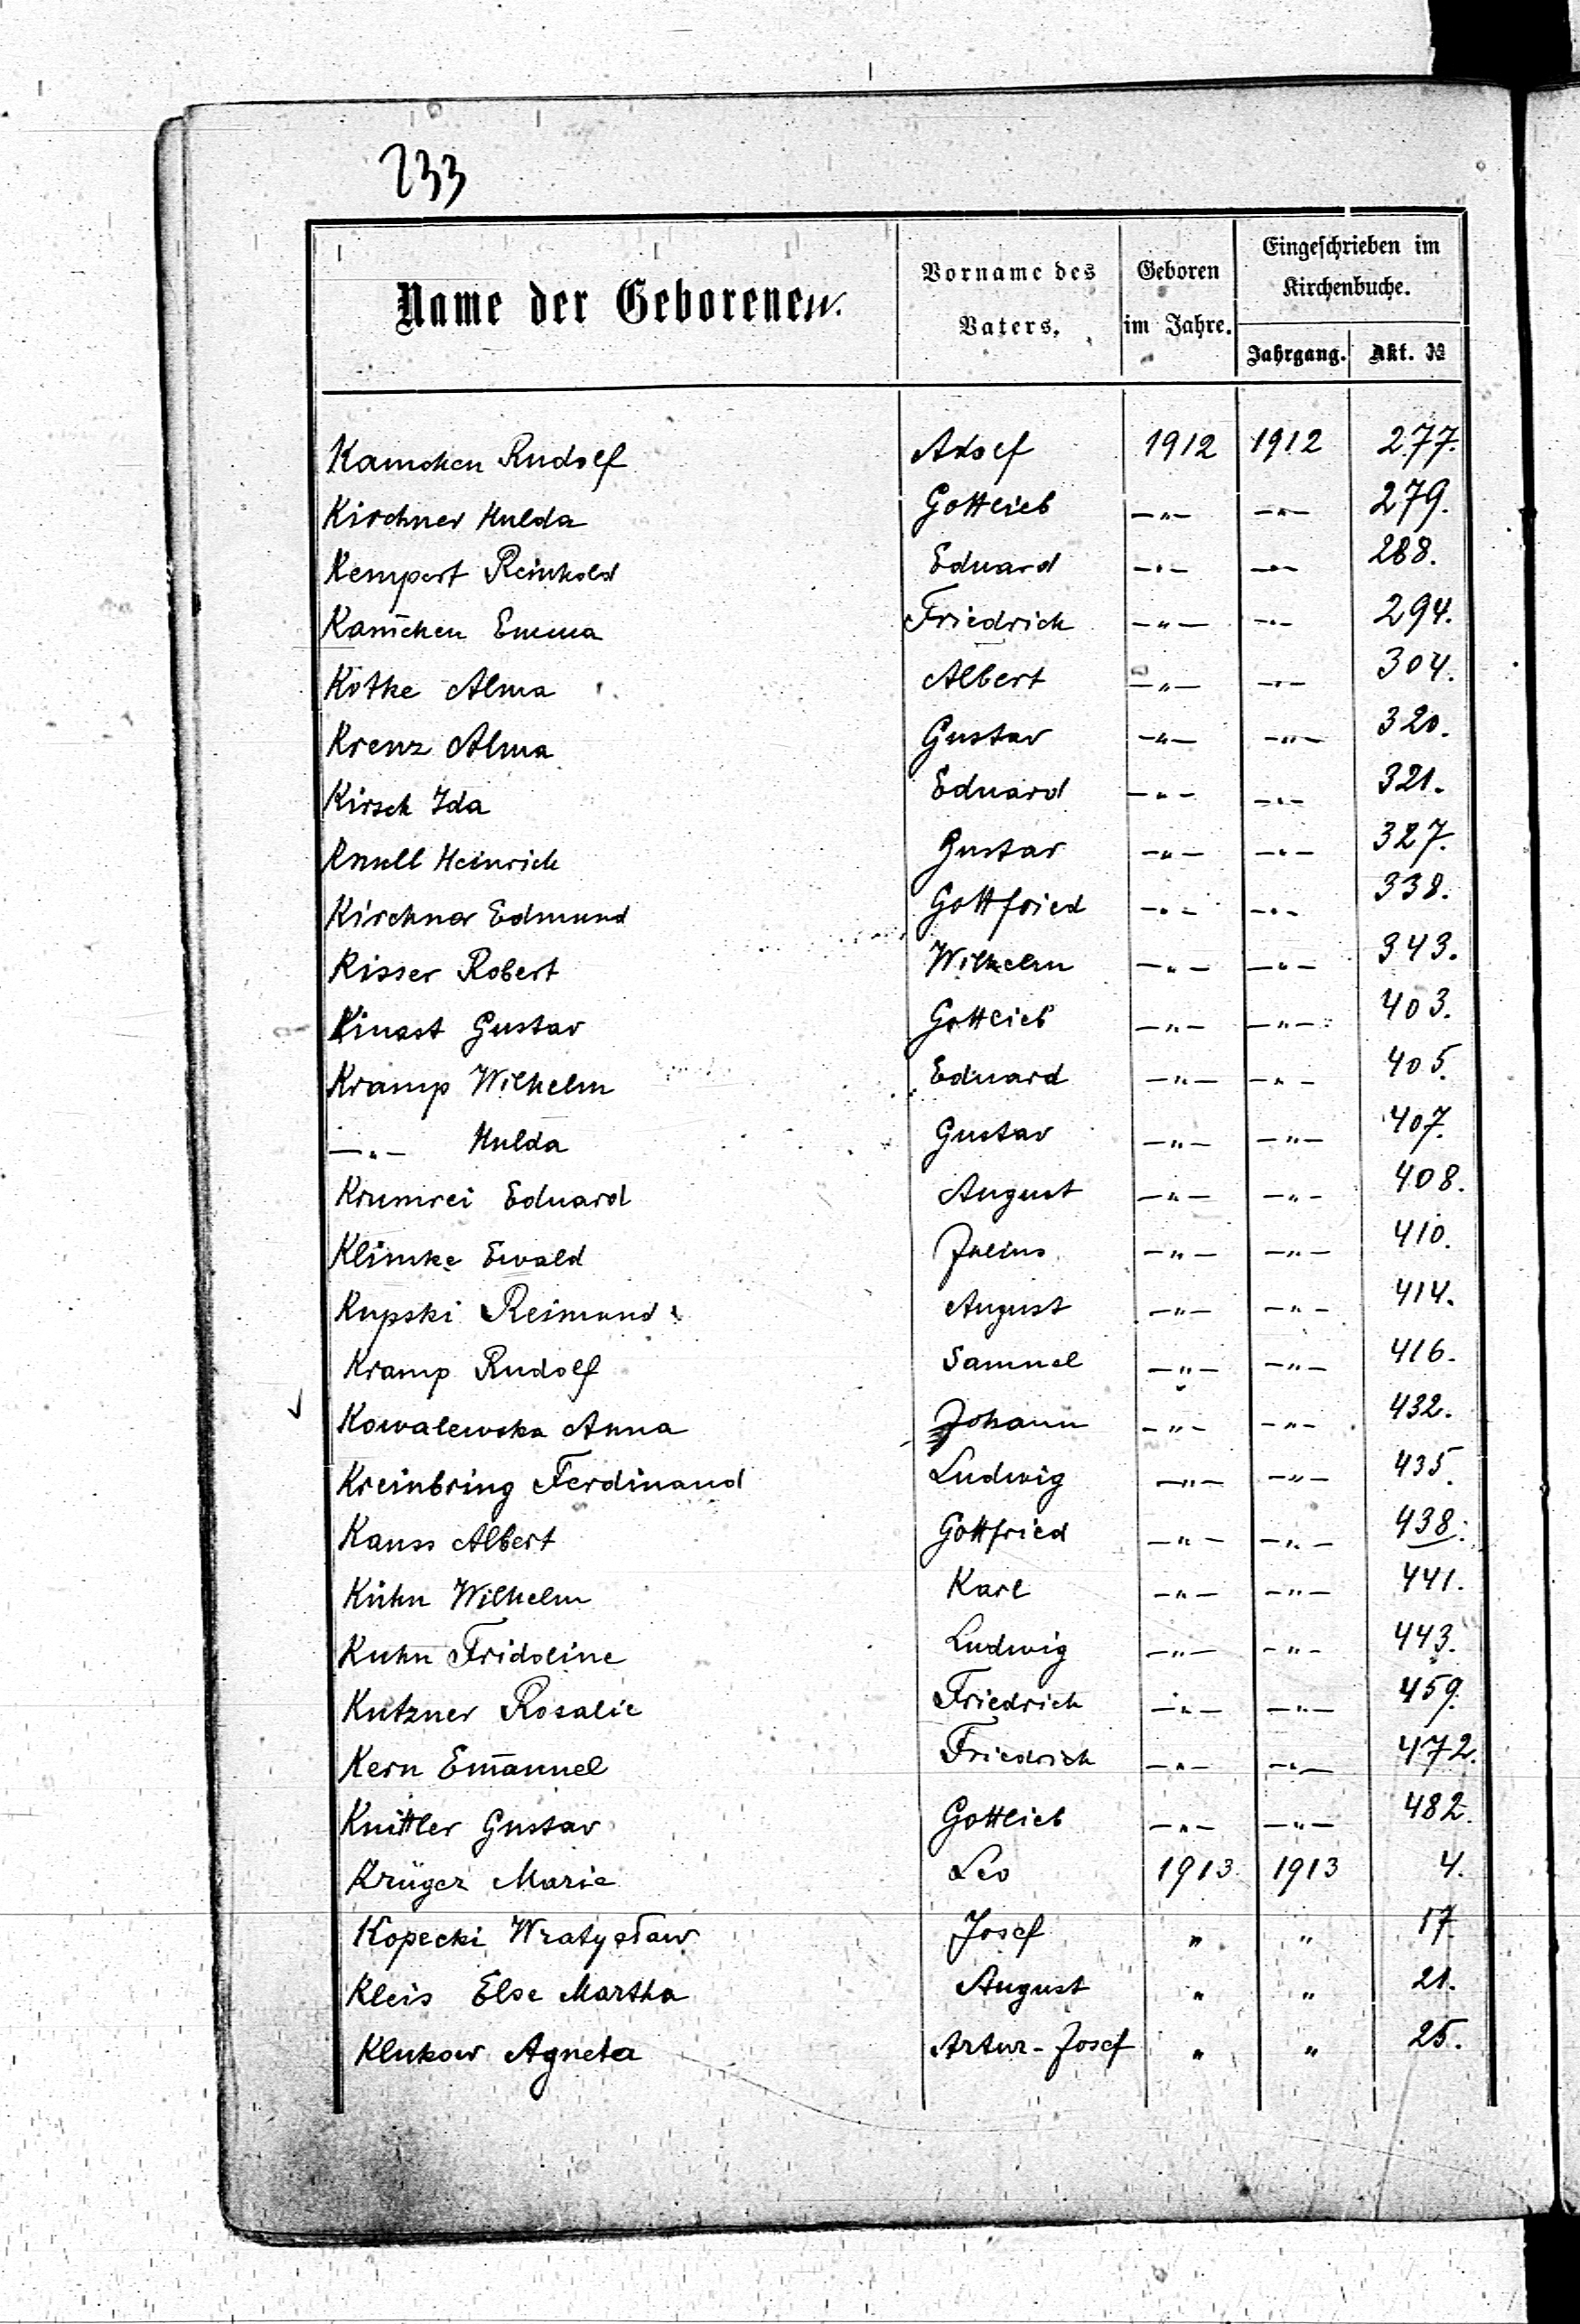 233
Name der Geborenen.
Vorname des Vaters.
Geboren im Jahre.
Eingeschrieben im Kirchenbuche.
Jahrgang.
Akt. №
Kamchen Rudolf Adolf 1912 1912 277.
Kirchner Hulda Gottlieb —„— —„— 279.
Kempert Reinhold Eduard —„— —„— 288.
Kam̄chen Emma Friedrich —„— —„— 294.
Kotke Alma Albert —„— —„— 304.
Krenz Alma Gustav —„— —„— 320.
Kirsch Ida Eduard —„— —„— 321.
Knull Heinrich Gustav —„— —„— 327.
Kirchner Edmund Gottfried —„— —„— 338.
Kisser Robert Wilhelm —„— —„— 343.
Kinast Gustav Gottlieb —„— —„— 403.
Kramp Wilhelm Eduard —„— —„— 405.
—„— Hulda Gustav —„— —„— 407.
Krumrei Eduard August —„— —„— 408.
Klimke Ewald Julius —„— —„— 410.
Kupski Reimund August —„— —„— 414.
Kramp Rudolf Samuel —„— —„— 416.
Kowalewska Anna Johann —„— —„— 432.
Kreinbring Ferdinand Ludwig —„— —„— 435.
Kauss Albert Gottfried —„— —„— 438.
Kühn Wilhelm Karl —„— —„— 441.
Kuhn Fridoline Ludwig —„— —„— 443.
Kutzner Rosalie Friedrich —„— —„— 459.
Kern Em̄anuel Friedrich —„— —„— 472.
Knittler Gustav Gottlieb —„— —„— 482.
Krüger Marie Leo 1913 1913 4.
Kopecki Wratysław Josef „ „ 17.
Kleis Else Martha August „ „ 21.
Klukow Agneta Artur-Josef „ „ 25.